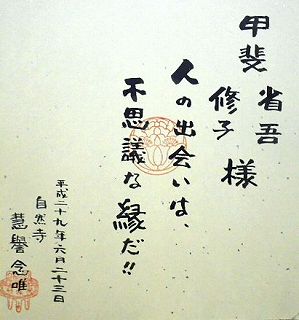 甲斐 省吾
修子 様
人の出会いは、
不思議な縁だ!!
平成二十九年六月二十三日
自然寺
慧譽念唯